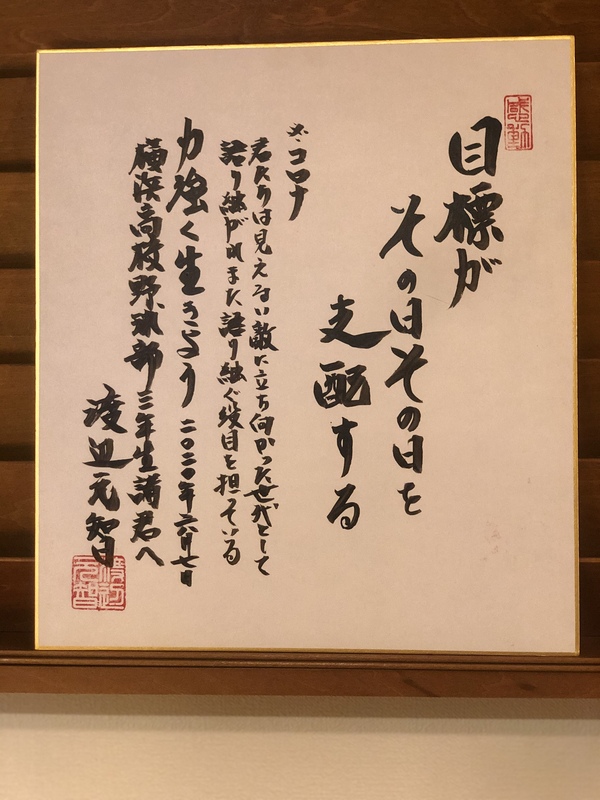 感動
目標が
その日その日を
支配する
コロナ
君たちは見えない敵に立ち向かった世代として
語り継がれまた語り継ぐ役目を担っている
力強く生きよう 二〇二〇年六月七日
横浜高校野球部三年生諸君へ
渡辺元智
渡辺元智